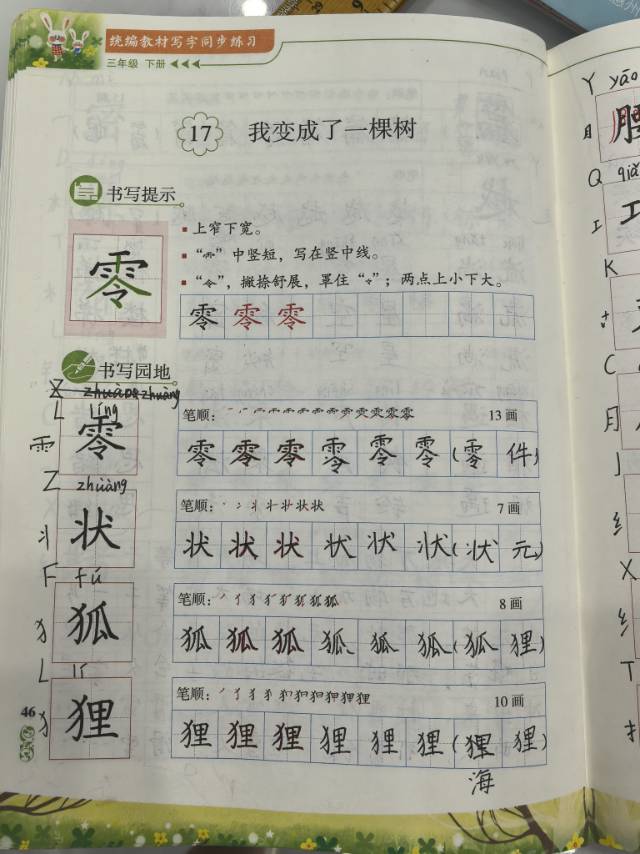 统编教材写字同步练习
三年级 下册
17 我变成了一棵树
书写提示
零
上窄下宽。
“⻗”中竖短，写在竖中线。
“令”，撇捺舒展，罩住“ ”；两点上小下大。
零零零
书写园地
Z zhuàng zhuàng
L líng
⻗ 零
笔顺： 13画
零零零零零零(零件)
Z zhuàng
丬 状
笔顺： 7画
状状状状状状(状元)
F fú
犭 狐
笔顺： 8画
狐狐狐狐狐狐(狐狸)
L lí
犭 狸
笔顺： 10画
狸狸狸狸狸狸(狸狸)
海
46
Y yāo
月 腰
Q
工
K
C
月
J
纟
X
纟
T
扌